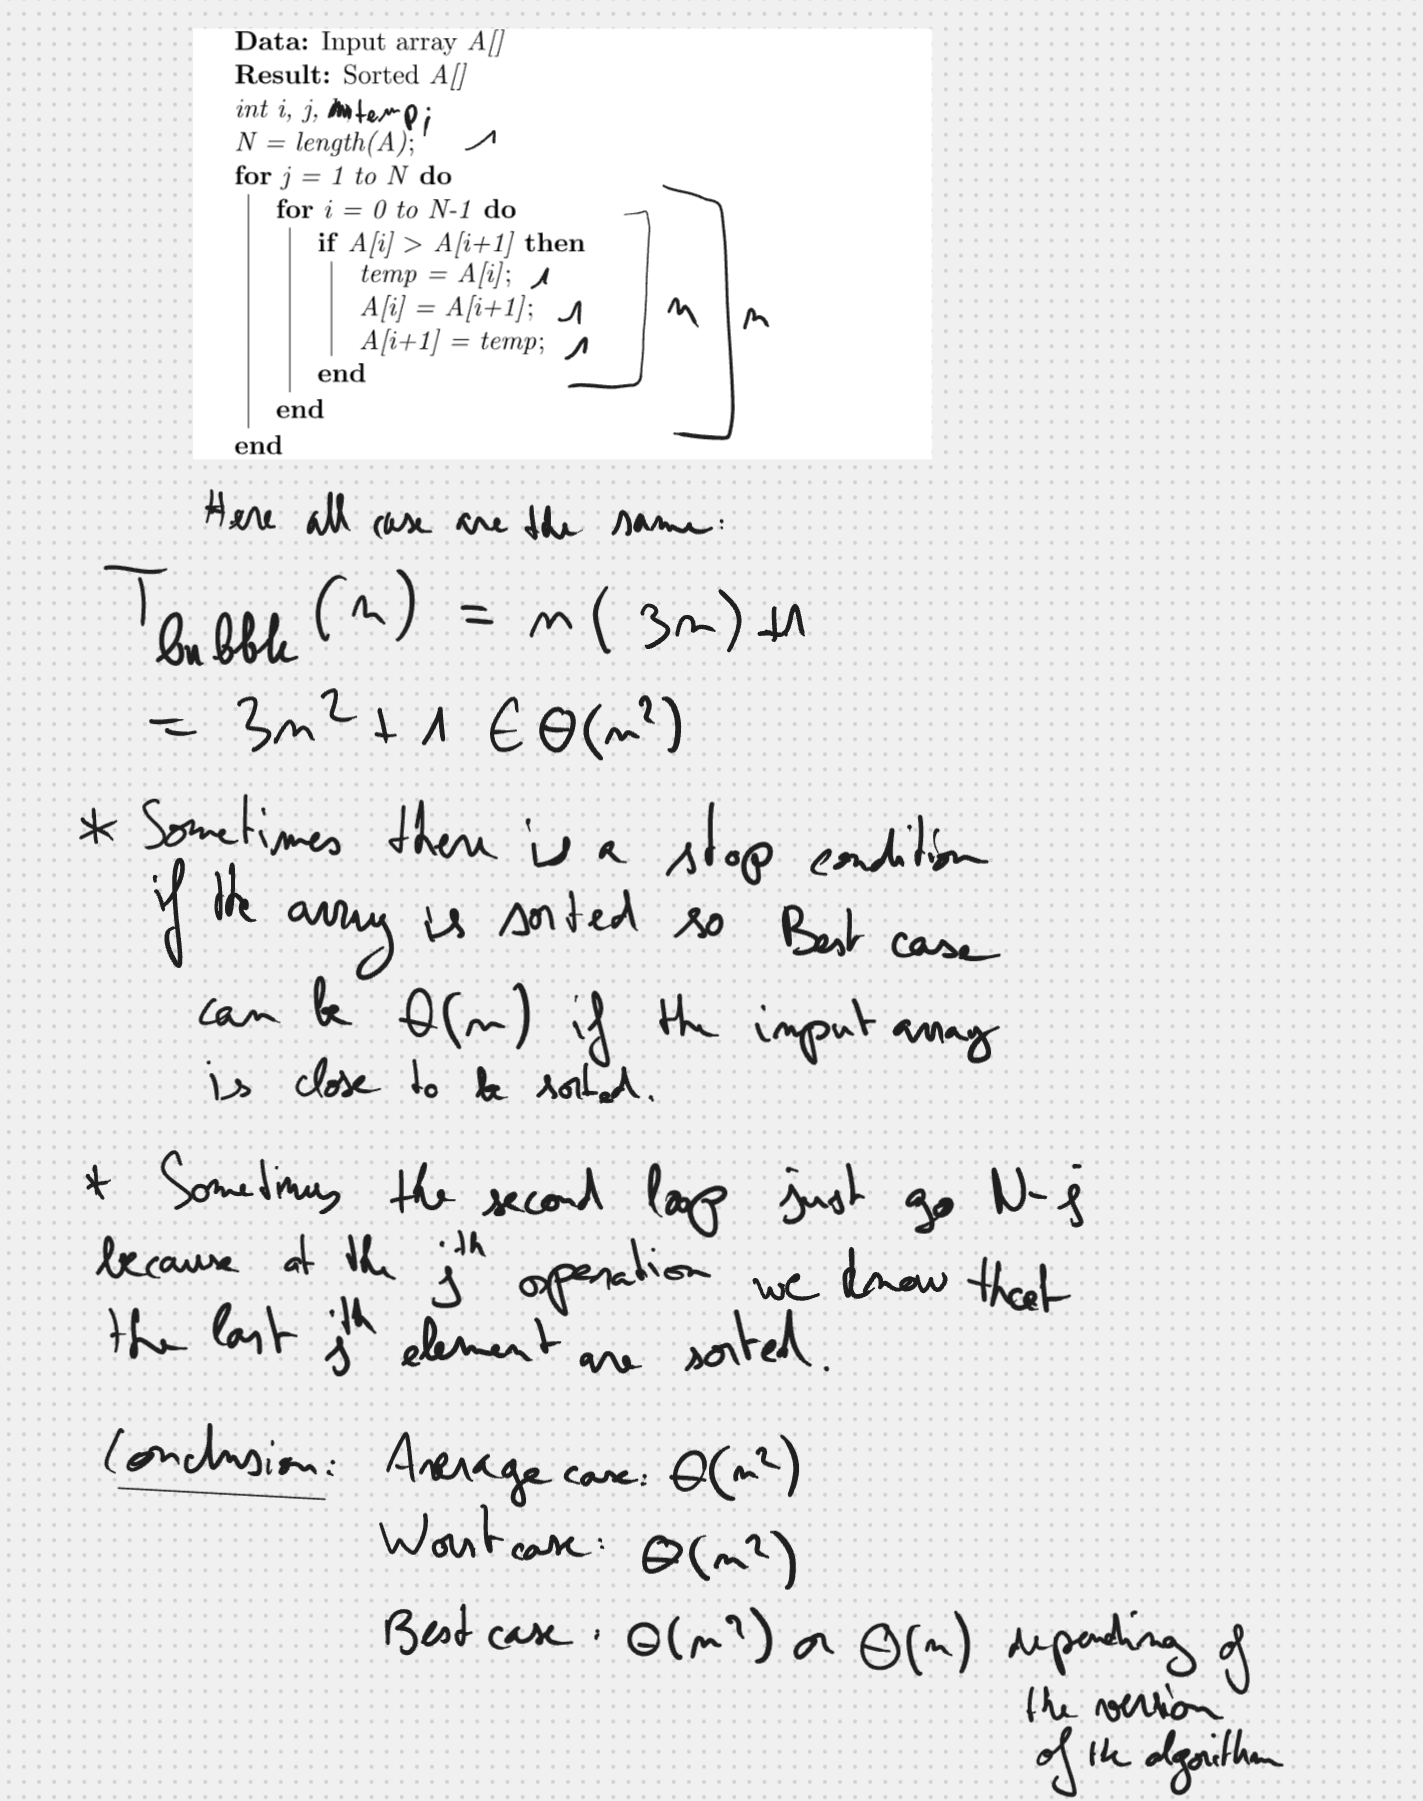 Data: Input array A[]
Result: Sorted A[]
int i, j, temp;
N = length(A); 1
for j = 1 to N do
for i = 0 to N-1 do
if A[i] > A[i+1] then
temp = A[i]; 1
A[i] = A[i+1]; 1 n n
A[i+1] = temp; 1
end
end
end
Here all case are the same:
T bubble (n) = n(3n)+1
= 3n² + 1 ∈ Θ(n²)
* Sometimes there is a stop condition
if the array is sorted so Best case
can be Θ(n) if the input array
is close to be sorted.
* Sometimes the second loop just go N-j
because at the jth operation we know that
the last jth element are sorted.
Conclusion: Average case: Θ(n²)
Worst case: Θ(n²)
Best case: Θ(n²) or Θ(n) depending of
the version
of the algorithm